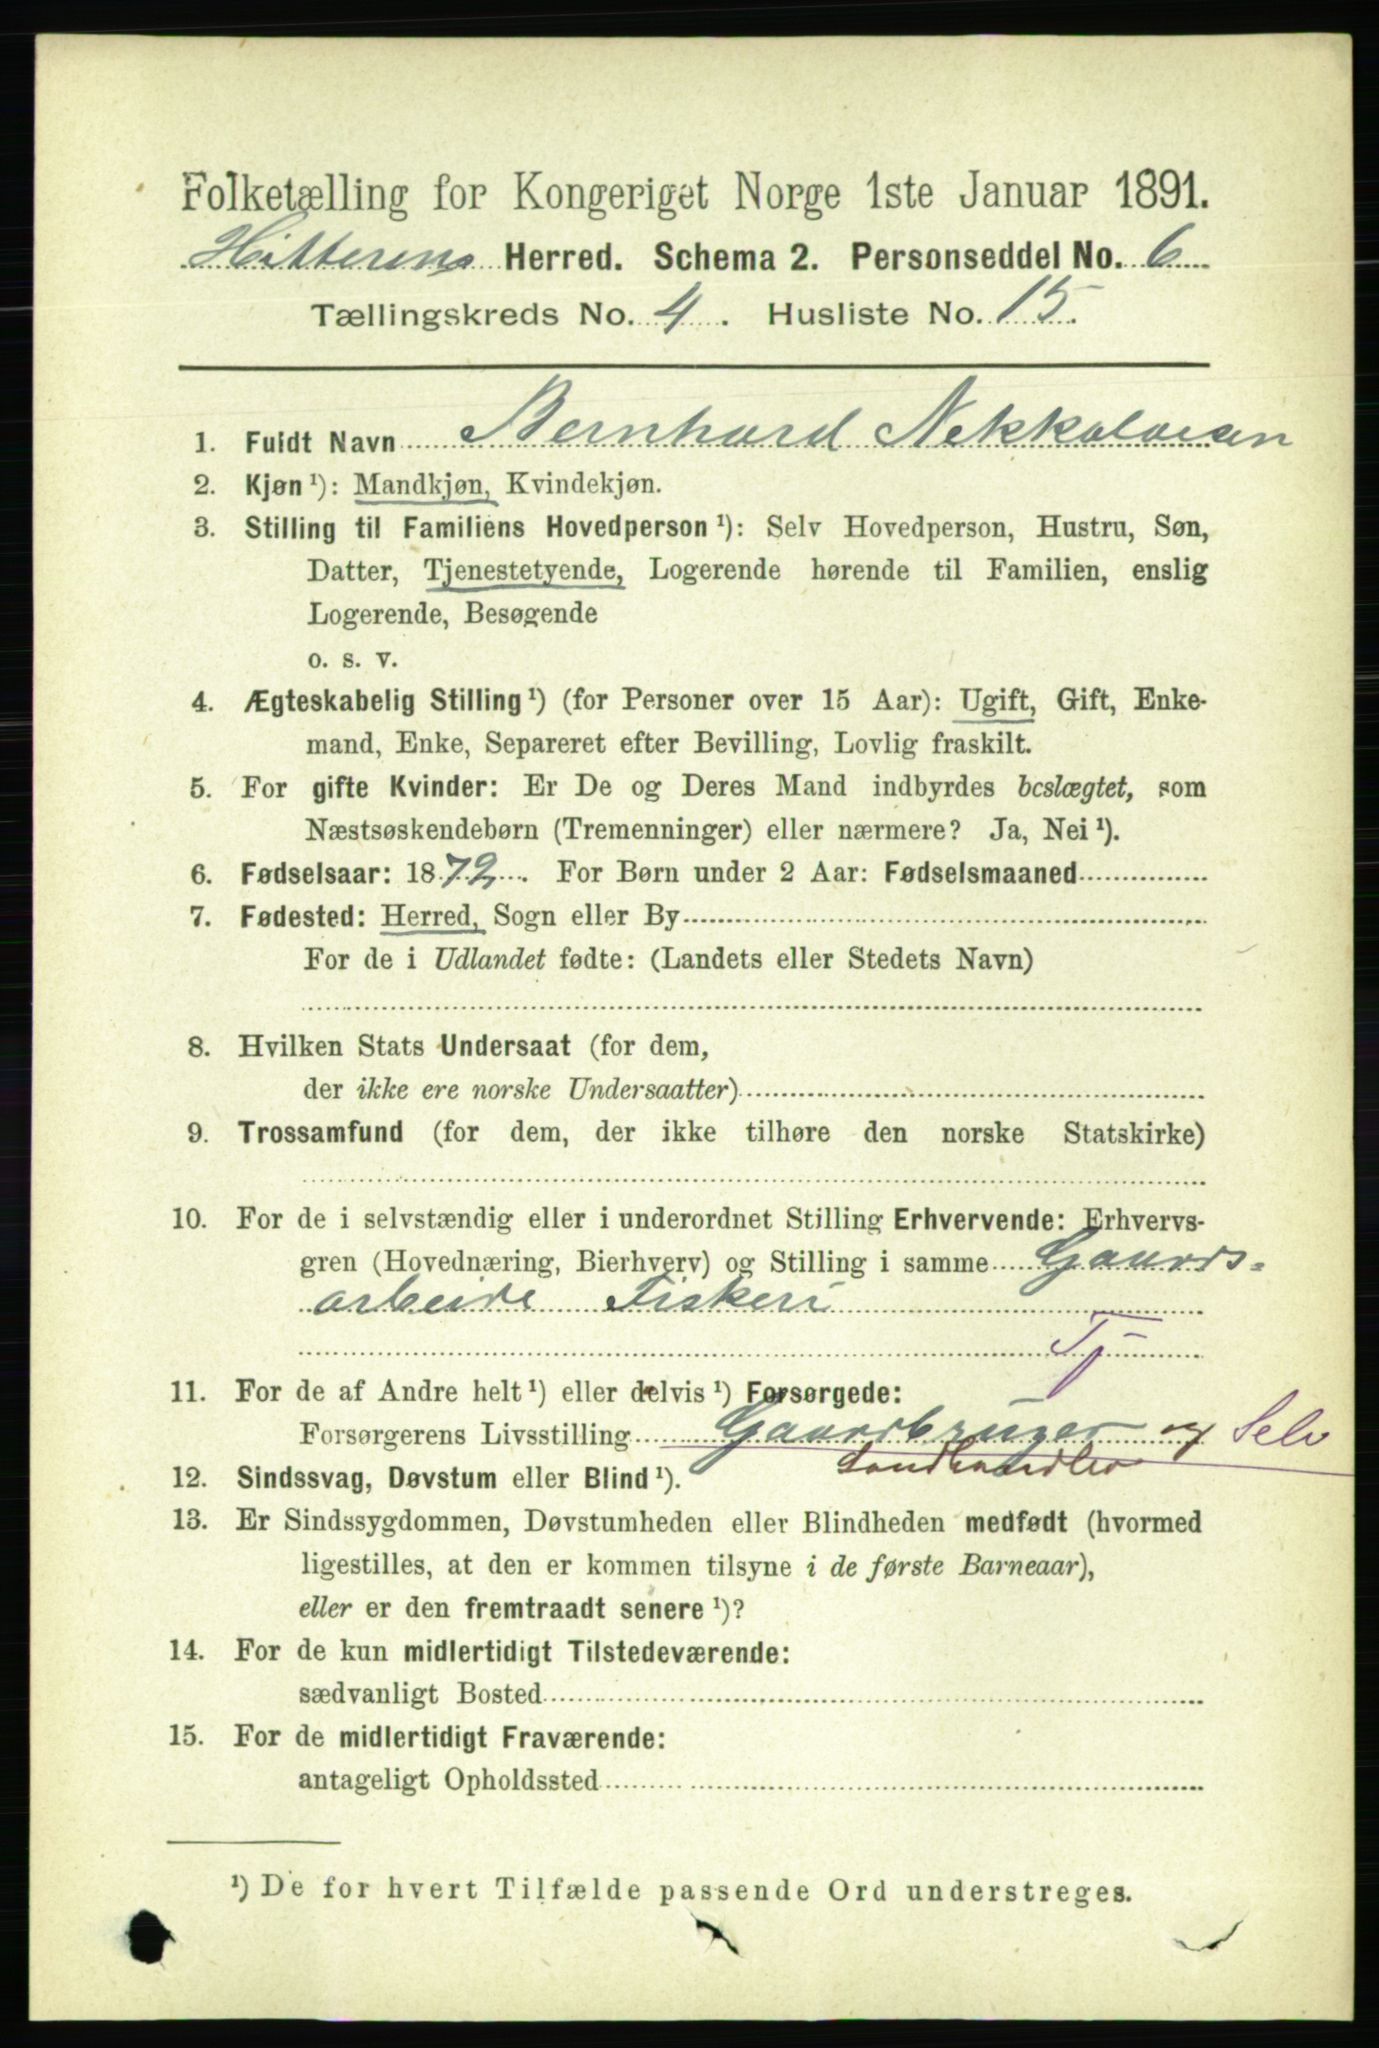 Folketælling for Kongeriget Norge 1ste Januar 1891.
Hitterens Herred. Schema 2. Personseddel No. 6
Tællingskreds No. 4. Husliste No. 15.
1. Fuldt Navn Bernhard Nekkolaisen
2. Kjøn ¹): Mandkjøn, Kvindekjøn.
3. Stilling til Familiens Hovedperson ¹): Selv Hovedperson, Hustru, Søn,
Datter, Tjenestetyende, Logerende hørende til Familien, enslig
Logerende, Besøgende
o. s. v.
4. Ægteskabelig Stilling ¹) (for Personer over 15 Aar): Ugift, Gift, Enke-
mand, Enke, Separeret efter Bevilling, Lovlig fraskilt.
5. For gifte Kvinder: Er De og Deres Mand indbyrdes beslægtet, som
Næstsøskendebørn (Tremenninger) eller nærmere? Ja, Nei ¹).
6. Fødselsaar: 1872. For Børn under 2 Aar: Fødselsmaaned
7. Fødested: Herred, Sogn eller By
For de i Udlandet fødte: (Landets eller Stedets Navn)
8. Hvilken Stats Undersaat (for dem,
der ikke ere norske Undersaatter)
9. Trossamfund (for dem, der ikke tilhøre den norske Statskirke)
10. For de i selvstændig eller i underordnet Stilling Erhvervende: Erhvervs-
gren (Hovednæring, Bierhverv) og Stilling i samme Gaards-
arbeide Fiskeri
Tj
11. For de af Andre helt ¹) eller delvis ¹) Forsørgede:
Forsørgerens Livsstilling Gaardbruger og Selv
Landhandler
12. Sindssvag, Døvstum eller Blind ¹).
13. Er Sindssygdommen, Døvstumheden eller Blindheden medfødt (hvormed
ligestilles, at den er kommen tilsyne i de første Barneaar),
eller er den fremtraadt senere ¹)?
14. For de kun midlertidigt Tilstedeværende:
sædvanligt Bosted
15. For de midlertidigt Fraværende:
antageligt Opholdssted
¹) De for hvert Tilfælde passende Ord understreges.